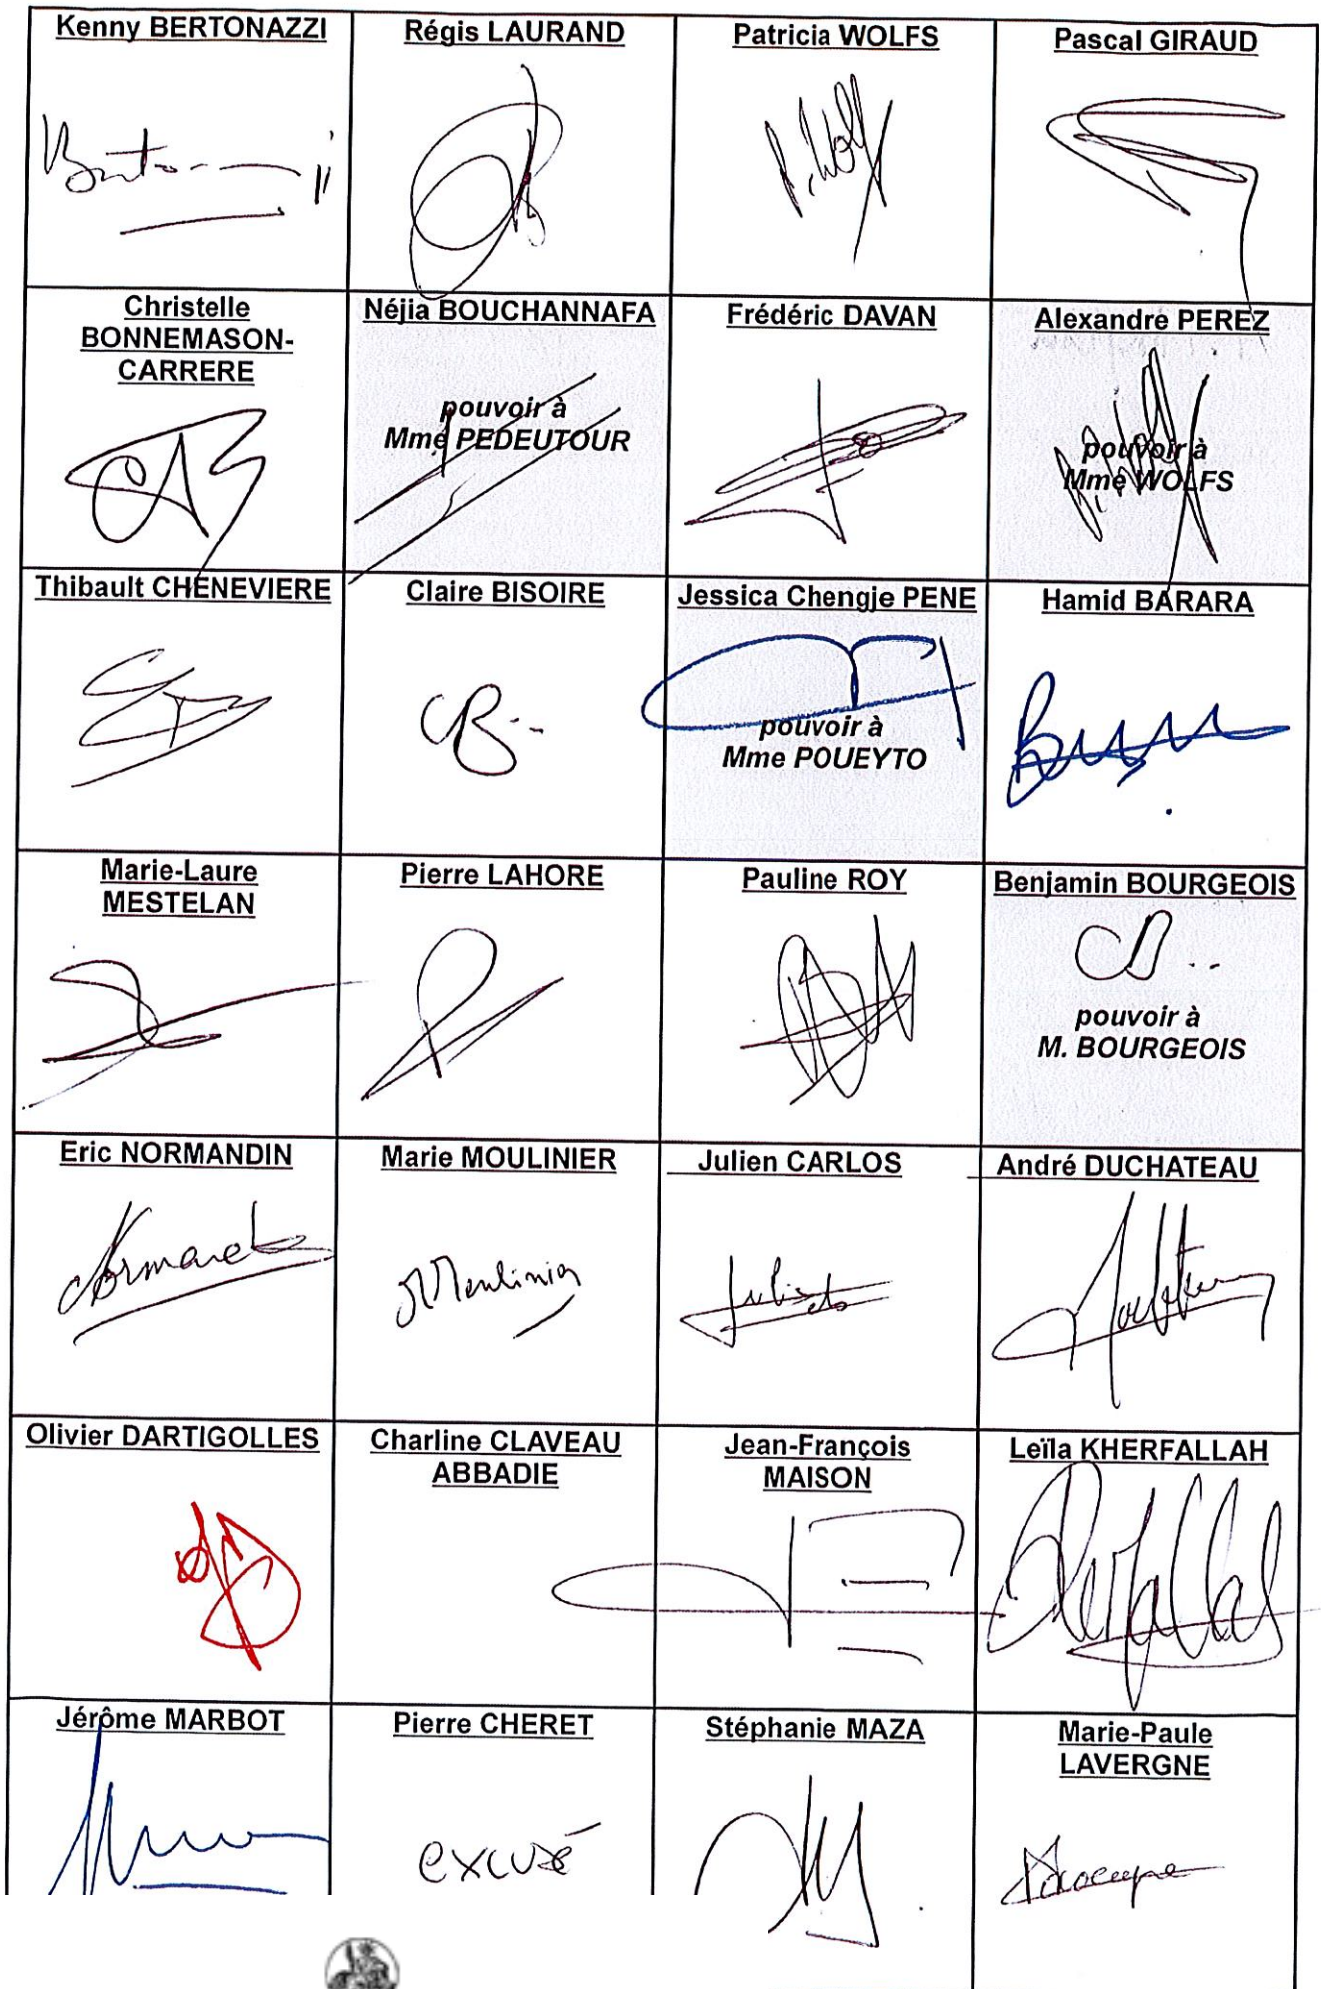 Kenny BERTONAZZI
Régis LAURAND
Patricia WOLFS
Pascal GIRAUD
P. Wolf
Christelle
BONNEMASON-
CARRERE
Néjia BOUCHANNAFA
pouvoir à
Mme PEDEUTOUR
Frédéric DAVAN
Alexandre PEREZ
pouvoir à
Mme WOLFS
Thibault CHENEVIERE
Claire BISOIRE
CB
Jessica Chengje PENE
pouvoir à
Mme POUEYTO
Hamid BARARA
Marie-Laure
MESTELAN
Pierre LAHORE
Pauline ROY
Benjamin BOURGEOIS
pouvoir à
M. BOURGEOIS
Eric NORMANDIN
Marie MOULINIER
Moulinier
Julien CARLOS
André DUCHATEAU
Olivier DARTIGOLLES
Charline CLAVEAU
ABBADIE
Jean-François
MAISON
Leïla KHERFALLAH
Jérôme MARBOT
Pierre CHERET
excusé
Stéphanie MAZA
Marie-Paule
LAVERGNE